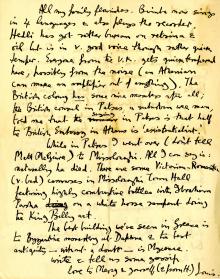 All my family flourishes. Brinda now sings
in 4 languages & also plays the recorder,
Hedli has got rather buxom on retsina &
oil but is in v. good voice though rather given
temper. Everyone from the U.K. gets quite exhausted
here, possibly from the noise (an Athenian
can make an amplifier of anything). The
British colony has some nice members after all;
the British consul in Patras, a bachelor one man
told me that the in Patras is that half
the British Embassy in Athens is existentialist.
While in Patras I went over (don't tell
McN (McGuire) to Missolonghi. All I can say is:
naturally he died. There are some Victorian Romantic
(v. bad) canvases in Missolonghi Town Hall
featuring highly combative battles with Ibrahim
Pasha on a white horse rampant doing
the King Billy act.
The best building we've seen in Greece is
the Byzantine monastery at Daphne & the best
antiquity — without a doubt — is Mycenae.
Write & tell us some gossip.
Love to Mercy & yourself (& from H.)